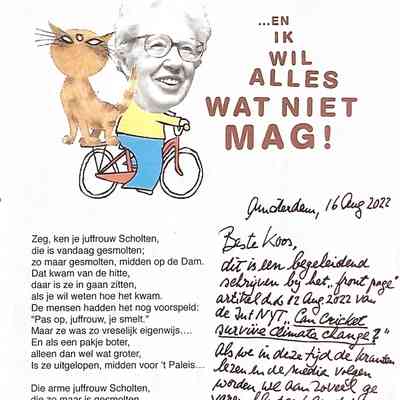 ...EN
IK
WIL
ALLES
WAT NIET
MAG!
Amsterdam, 16 Aug 2022
Zeg, ken je juffrouw Scholten,
die is vandaag gesmolten;
zo maar gesmolten, midden op de Dam.
Dat kwam van de hitte,
daar is ze in gaan zitten,
als je wil weten hoe het kwam.
De mensen hadden het nog voorspeld:
"Pas op, juffrouw, je smelt."
Maar ze was zo vreselijk eigenwijs....
En als een pakje boter,
alleen dan wel wat groter,
Is ze uitgelopen, midden voor 't Paleis...
Die arme juffrouw Scholten,
die zo maar is gesmolten
Beste Koos,
dit is een begeleidend
schrijven bij het "front page"
artikel d.d. 12 Aug. 2022 van
de Int NYT.. Can Cricket
survive climate change?"
Als we in deze tijd de kranten
lezen en de media volgen
worden we aan zoveel ge